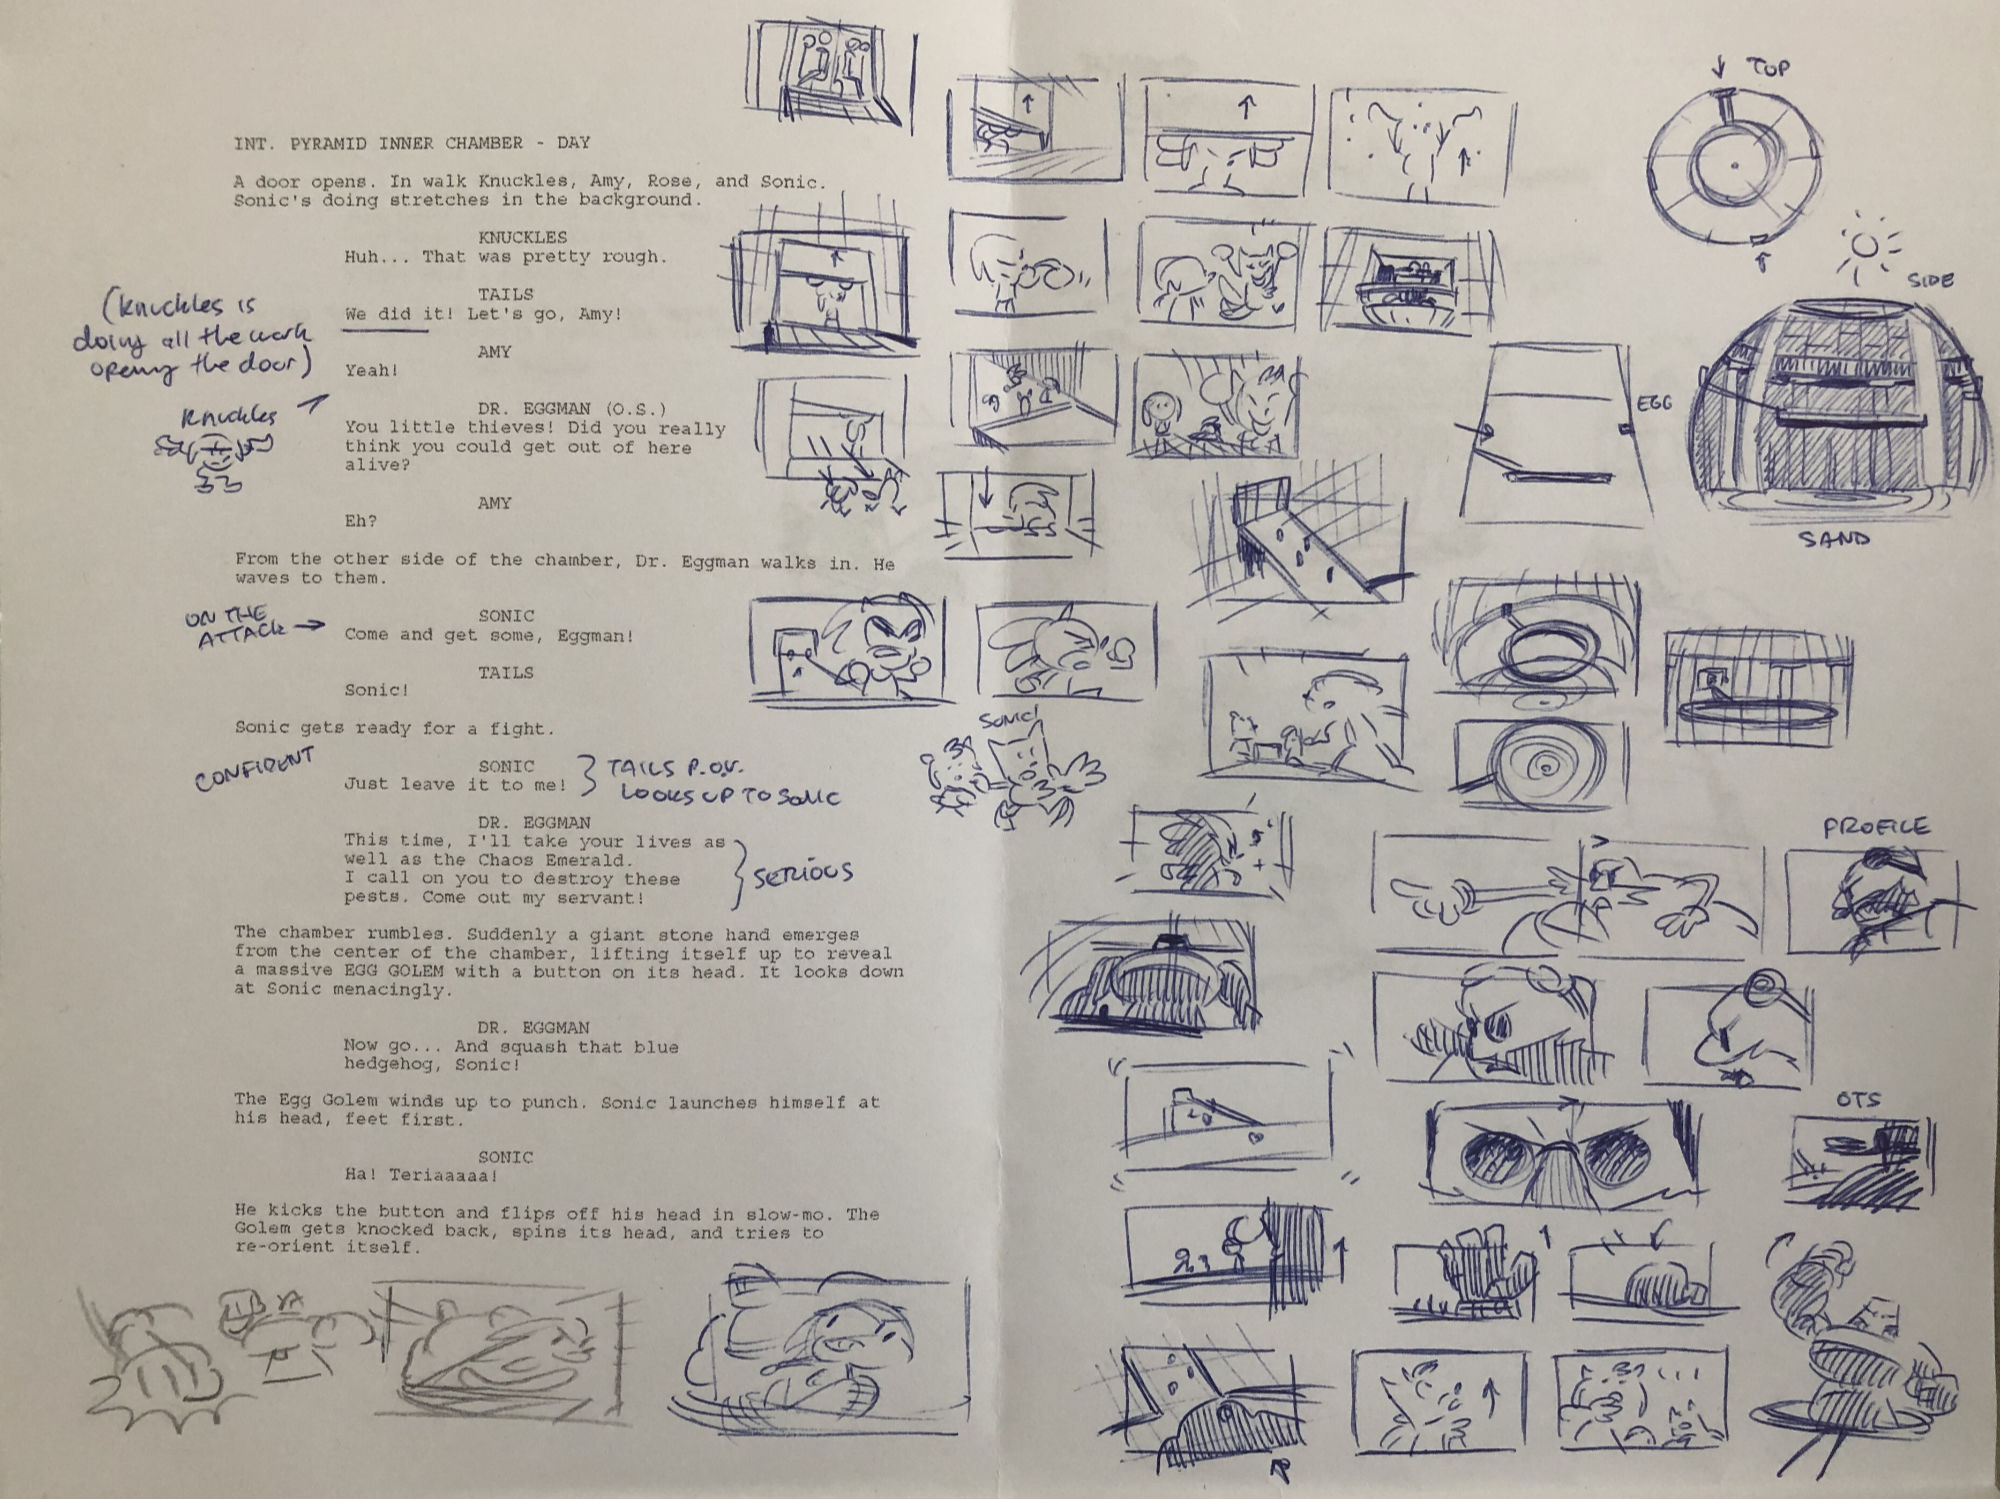 INT. PYRAMID INNER CHAMBER - DAY
A door opens. In walk Knuckles, Amy, Rose, and Sonic.
Sonic's doing stretches in the background.
KNUCKLES
Huh... That was pretty rough.
TAILS
We did it! Let's go, Amy!
(Knuckles is
doing all the work
opening the door)
AMY
Yeah!
Knuckles
DR. EGGMAN (O.S.)
You little thieves! Did you really
think you could get out of here
alive?
AMY
Eh?
From the other side of the chamber, Dr. Eggman walks in. He
waves to them.
ON THE
ATTACK →
SONIC
Come and get some, Eggman!
TAILS
Sonic!
Sonic gets ready for a fight.
CONFIDENT
SONIC
Just leave it to me!
TAILS P.O.V.
LOOKS UP TO SONIC
DR. EGGMAN
This time, I'll take your lives as
well as the Chaos Emerald.
I call on you to destroy these
pests. Come out my servant!
SERIOUS
The chamber rumbles. Suddenly a giant stone hand emerges
from the center of the chamber, lifting itself up to reveal
a massive EGG GOLEM with a button on its head. It looks down
at Sonic menacingly.
DR. EGGMAN
Now go... And squash that blue
hedgehog, Sonic!
The Egg Golem winds up to punch. Sonic launches himself at
his head, feet first.
SONIC
Ha! Teriaaaaa!
He kicks the button and flips off his head in slow-mo. The
Golem gets knocked back, spins its head, and tries to
re-orient itself.
TOP
SIDE
EGG
SAND
SONIC!
PROFILE
OTS